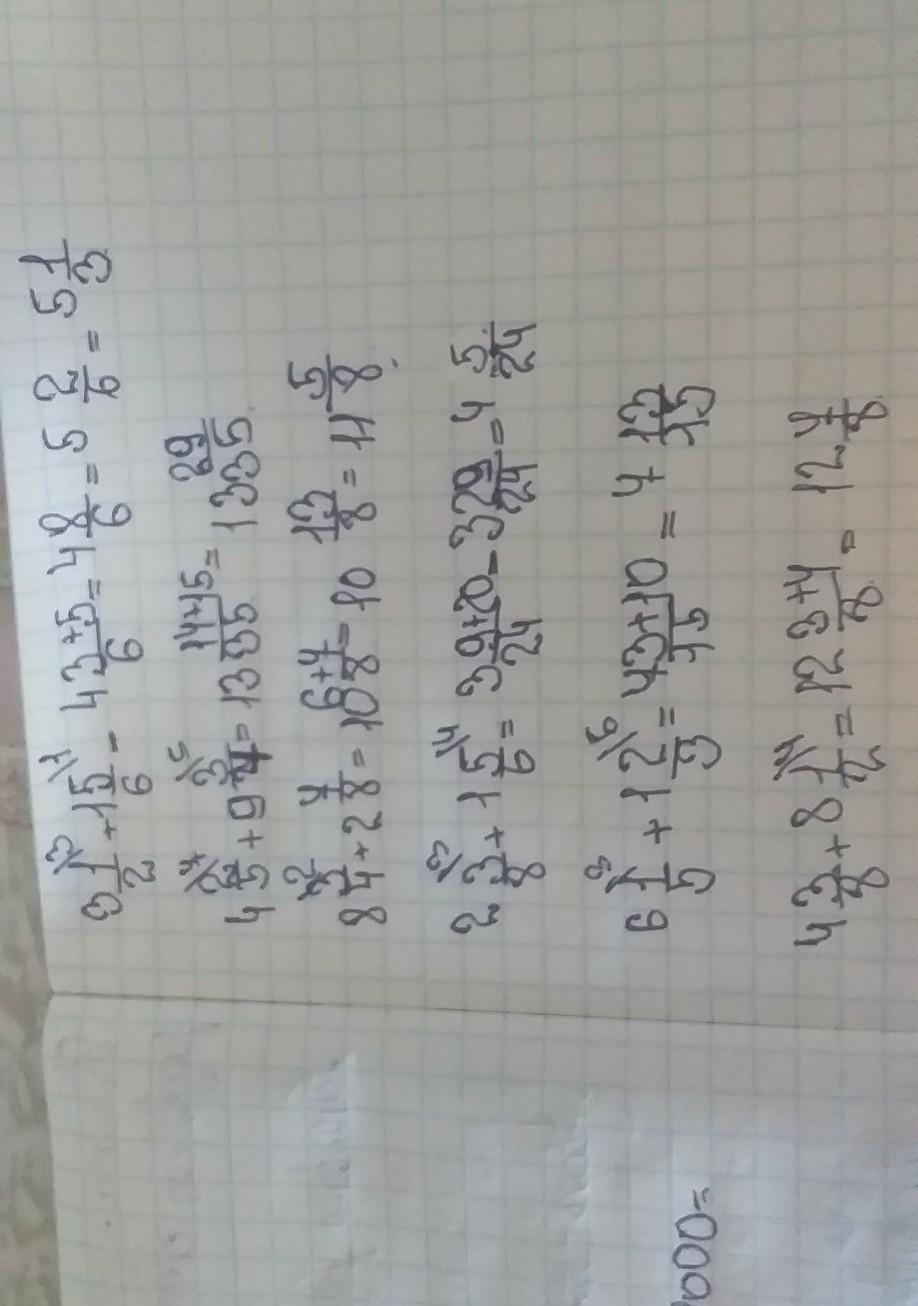 3 1/2 \3 + 1 5/6 \1 = 4 3+5/6 = 4 8/6 = 5 2/6 = 5 1/3
4 2/5 \7 + 9 3/7 \5 = 13 14+15/35 = 13 29/35
8 3/4 \2 + 2 7/8 = 10 6+7/8 = 10 13/8 = 11 5/8.
2 3/8 \3 + 1 5/6 \4 = 3 9+20/24 = 3 29/24 = 4 5/24
6 1/5 \3 + 1 2/3 \5 = 4 3+10/15 = 4 13/15
4 3/8 + 8 1/2 \4 = 12 3+4/8 = 12 7/8
000=